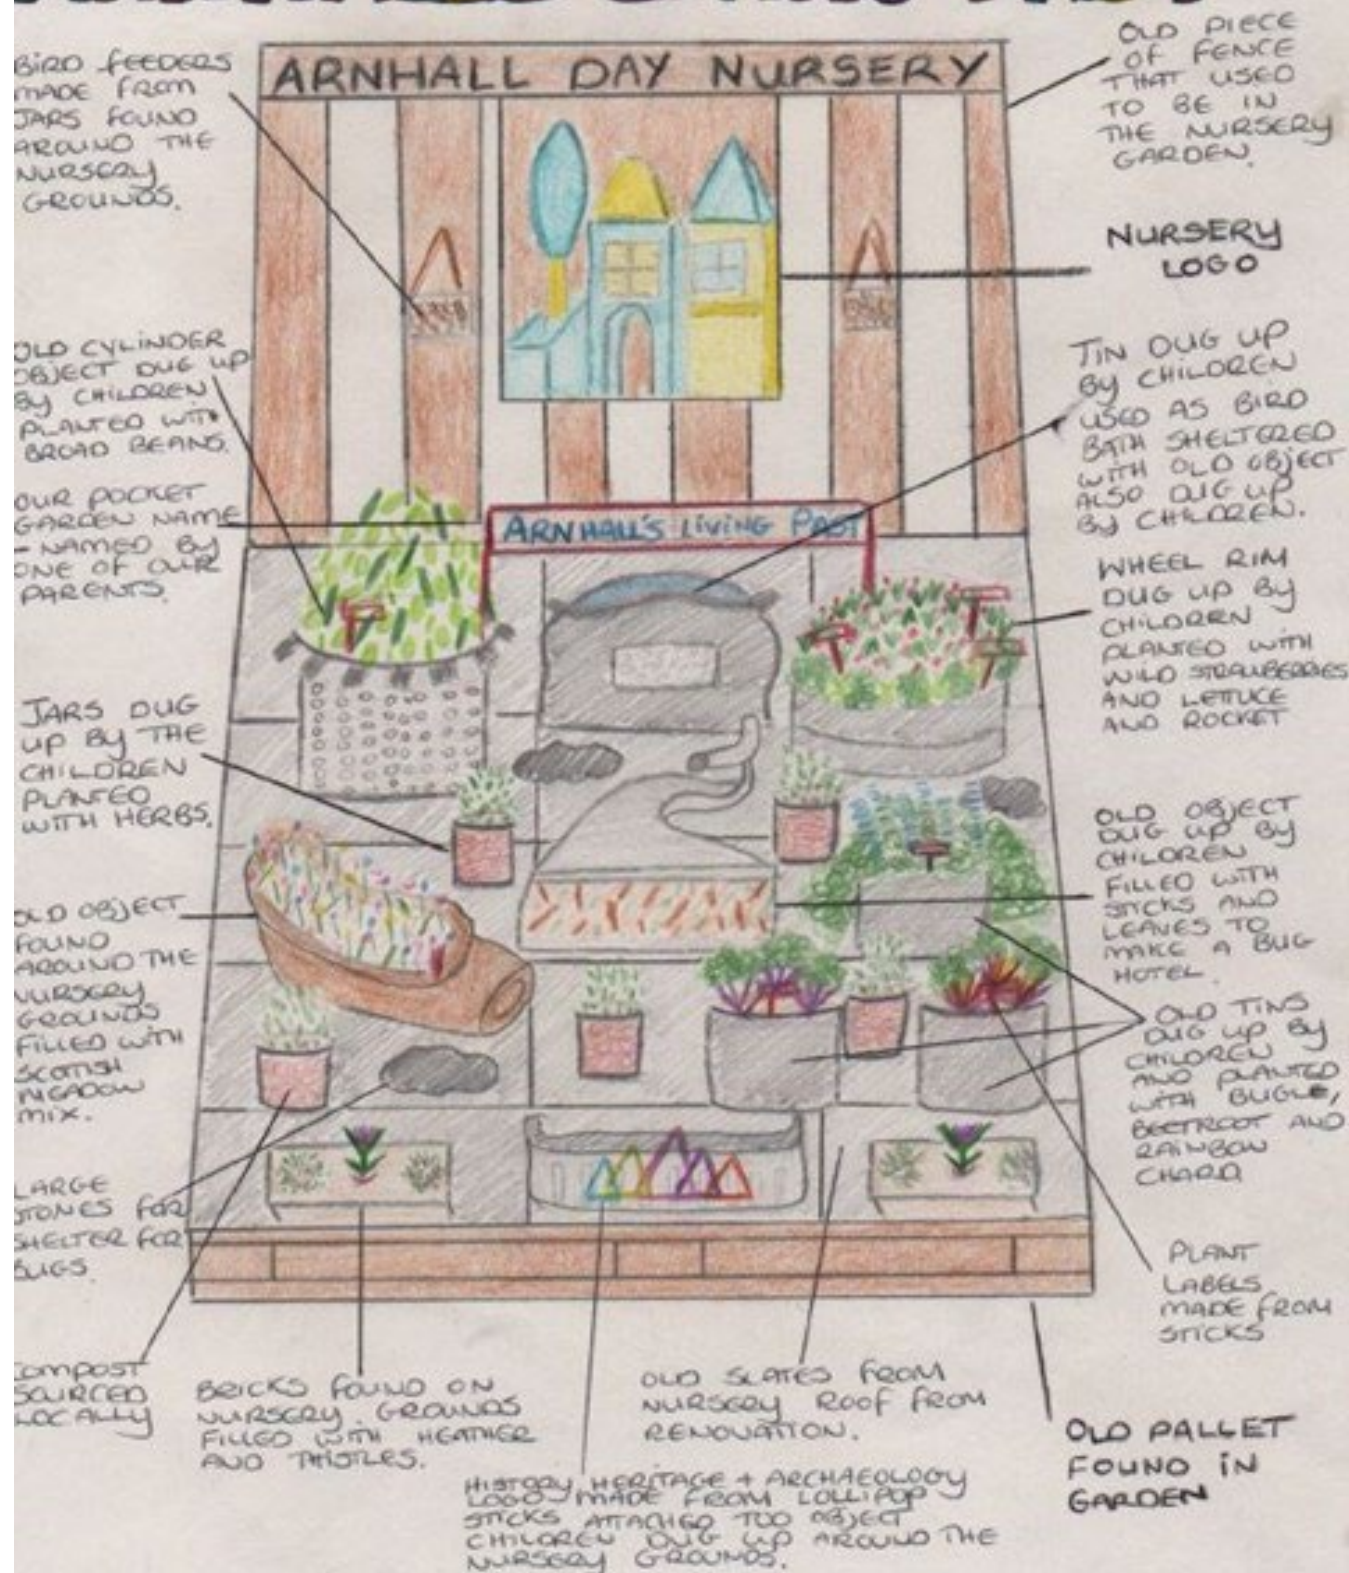 BIRD FEEDERS
MADE FROM
JARS FOUND
AROUND THE
NURSERY
GROUNDS.
ARNHALL DAY NURSERY
OLD PIECE
OF FENCE
THAT USED
TO BE IN
THE NURSERY
GARDEN.
NURSERY
LOGO
OLD CYLINDER
OBJECT DUG UP
BY CHILDREN
PLANTED WITH
BROAD BEANS.
TIN DUG UP
BY CHILDREN
USED AS BIRD
BATH SHELTERED
WITH OLD OBJECT
ALSO DUG UP
BY CHILDREN.
OUR POCKET
GARDEN NAME
- NAMED BY
ONE OF OUR
PARENTS.
ARNHALL'S LIVING PAST
WHEEL RIM
DUG UP BY
CHILDREN
PLANTED WITH
WILD STRAWBERRIES
AND LETTUCE
AND ROCKET
JARS DUG
UP BY THE
CHILDREN
PLANTED
WITH HERBS.
OLD OBJECT
DUG UP BY
CHILDREN
FILLED WITH
STICKS AND
LEAVES TO
MAKE A BUG
HOTEL.
OLD OBJECT
FOUND
AROUND THE
NURSERY
GROUNDS
FILLED WITH
SCOTTISH
MEADOW
MIX.
OLD TINS
DUG UP BY
CHILDREN
AND PLANTED
WITH BUGLE,
BEETROOT AND
RAINBOW
CHARD
LARGE
STONES FOR
SHELTER FOR
BUGS.
PLANT
LABELS
MADE FROM
STICKS
COMPOST
SOURCED
LOCALLY
BRICKS FOUND ON
NURSERY GROUNDS
FILLED WITH HEATHER
AND THISTLES.
OLD SLATES FROM
NURSERY ROOF FROM
RENOVATION.
OLD PALLET
FOUND IN
GARDEN
HISTORY HERITAGE + ARCHAEOLOGY
LOGO MADE FROM LOLLIPOP
STICKS ATTACHED TOO OBJECT
CHILDREN DUG UP AROUND THE
NURSERY GROUNDS.